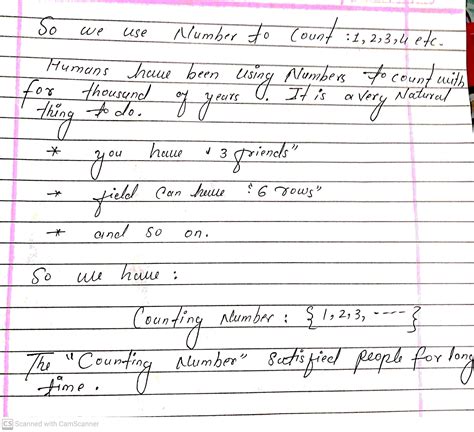 So we use Number to Count : 1, 2, 3, 4 etc.
Humans have been using Numbers to count with
for thousand of years. It is a very Natural
thing to do.
* you have "3 friends"
* field can have "6 rows"
* and so on.
So we have :
Counting Number : {1, 2, 3, ----}
The "Counting Number" satisfied people for long
time.
CS Scanned with CamScanner